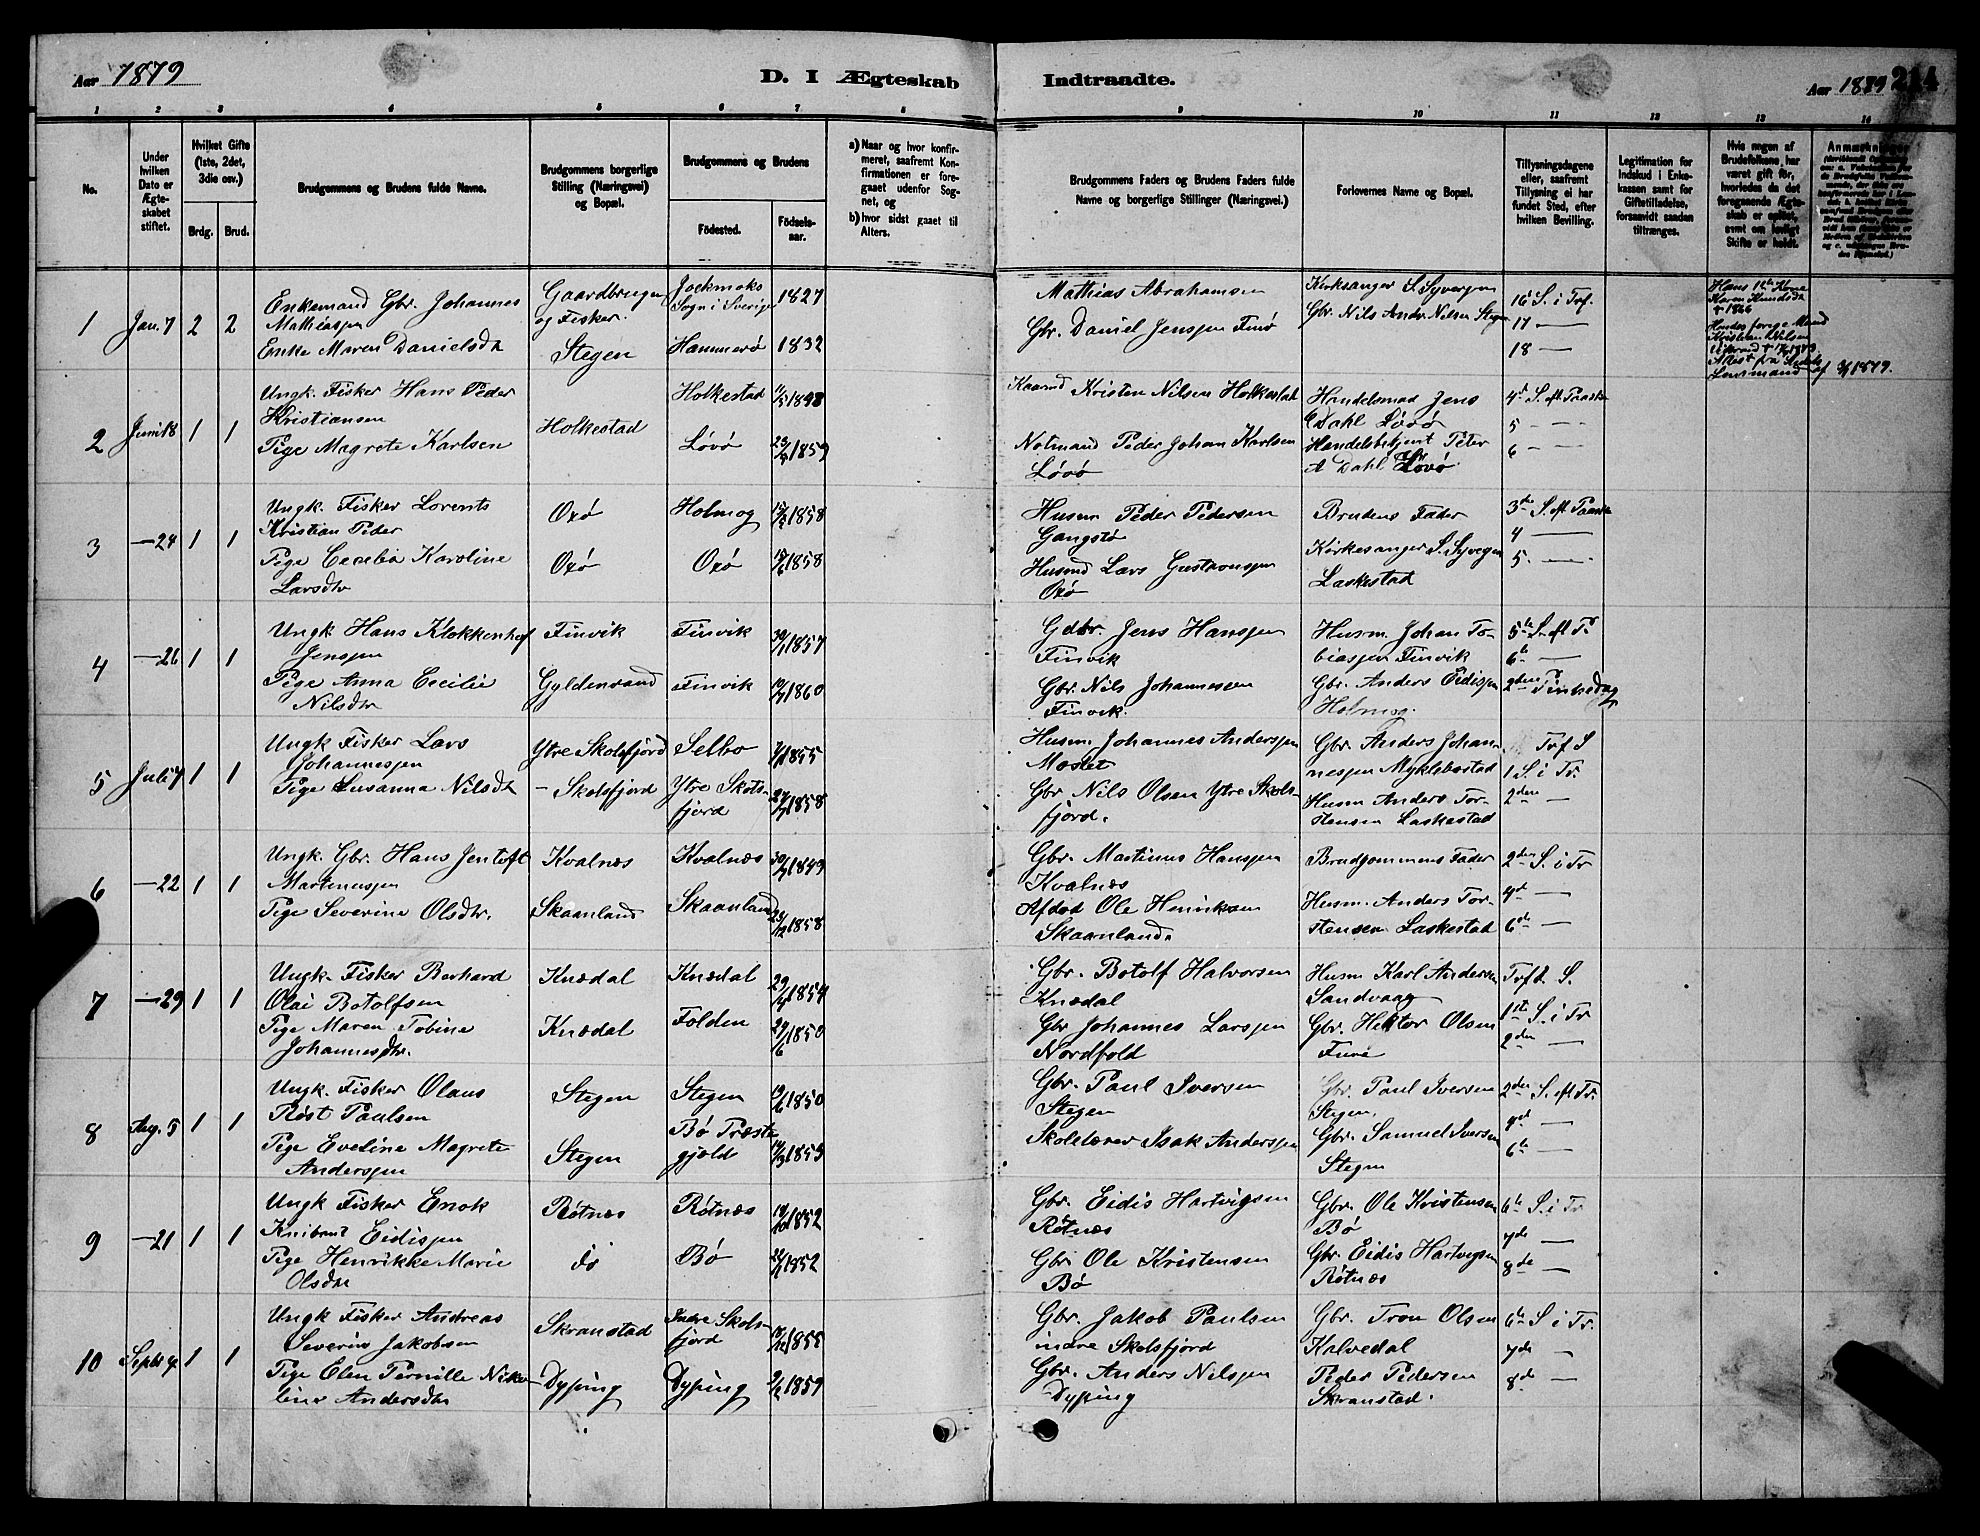 Aar 1879
D. I Ægteskab
Indtraadte.
Aar 1879
214
1 2 3 4 5 6 7 8 9 10 11 12 13 14
No.
Under hvilken Dato er Ægteskabet stiftet.
Hvilket Gifte (1ste, 2det, 3die osv.)
Brdg. Brud.
Brudgommens og Brudens fulde Navne.
Brudgommens borgerlige Stilling (Næringsvei) og Bopæl.
Brudgommens og Brudens
Födested. Födselsaar.
a) Naar og hvor konfirmeret, saafremt Konfirmationen er foregaaet udenfor Sognet, og
b) hvor sidst gaaet til Alters.
Brudgommens Faders og Brudens Faders fulde Navne og borgerlige Stillinger (Næringsvei.)
Forlovernes Navne og Bopæl.
Tillysningsdagene eller, saafremt Tillysning ei har fundet Sted, efter hvilken Bevilling.
Legitimation for Indskud i Enkekassen samt for Giftetilladelse, forsaavidt saadan tiltrænges.
Hvis nogen af Brudefolkene har været gift för, hvorledes da det foregaaende Ægteskab er oplöst, samt om lovligt Skifte er holdt.
1 Jan. 7 2 2
Enkemand Gbr. Johannes
Mathiassen
Enke Maren Danielsdtr
Gaardbruger
og Fisker
Stegen
Jockmoks
Sogn i Sverige 1827
Hammerø 1832
Mathias Abrahamsen
Gbr. Daniel Jenssen Finø
Kirksanger S. Syversen
Gbr. Nils Andr. Nilsen Stegen
16 S. i Trf.
17 —
18 —
Hans 1ste Kone
Karen Knudsdtr
† 1866
Hendes forrige Mand
Kristian Nilsen
Attest fra
Lensmand
1879.
2 Juni 18 1 1
Ungk. Fisker Hans Peder
Kristiansen
Pige Magrete Karlsen
Holkestad
Holkestad
Løvø 1859
Kaarmd Kristen Nilsen Holkestad
Notmand Peder Johan Karlsen
Løvø
Handelsmad Jens
Dahl Løvø
Handelsbetjent Peter
A Dahl Løvø
4de S. eft Paaske
5 - -
6 - -
3 —24 1 1
Ungk. Fisker Lorents
Kristian Peder
Pige Cecilia Karoline
Larsdtr
Oxø
Oxø
Holmog 1858
Oxø 1858
Husm Peder Pedersen
Gangstø
Husmd Lars Gustavssen
Oxø
Brudens Fader
Kirkesanger S. Syversen
Laskestad
3die S. eft Paaske
4 —
5 - -
4 —26 1 1
Ungk. Hans Klokkenhof
Jenssen
Pige Anna Cecilie
Nilsdtr
Finvik
Gyldensand
Finvik 1857
Finvik 1860
Gdbr. Jens Hanssen
Finvik
Gbr. Nils Johannessen
Finvik.
Husm. Johan To-
biassen Finvik
Gbr. Anders Eidissen
Holmog.
5te S. eft P.
6te —
2den Pintsedag
5 Juli 7 1 1
Ungk Fisker Lars
Johannessen
Pige Susanna Nilsdtr
Ytre Skotsfjord
— Skotsfjord
Selbo 1855
Ytre Skots-
fjord 1858
Husm. Johannes Anderssen
Moslet
Gbr Nils Olsen Ytre Skots-
fjord.
Gbr. Anders Johan-
nessen Myklebostad
Husm Anders Tor-
stensen Laskestad
Trf S
1 S. i Tr.
2den —
6 —22 1 1
Ungk. Gbr. Hans Jentoft
Martinussen
Pige Severine Olsdtr.
Kvalnæs
Skaanland
Kvalnæs 1849
Skaanland 1858
Gbr. Martinus Hanssen
Kvalnæs
Afdød Ole Henriksen
Skaanland.
Brudgommens Fader
Husm. Anders Tor-
stensen Laskestad
2den S. i Tr
4de —
6te —
7 —29 1 1
Ungk. Fisker Berhard
Olai Botolfsen
Pige Maren Tobine
Johannesdtr.
Knædal
Knædal
Knædal 1854
Folden 1850
Gbr. Botolf Halvorsen
Knædal
Gbr Johannes Larssen
Nordfold
Husm Karl Andersen
Sandvaag
Gbr. Hektor Olsen
Furø
Trf S.
1ste S. i Tr
2den —
8 Aug. 5 1 1
Ungk. Fisker Olaus
Røst Paulsen
Pige Eveline Magrete
Anderssen
Stegen
Stegen
Stegen 1850
Bø Præste-
gjeld 1859
Gbr. Paul Iversen
Stegen
Skolelærer Isak Anderssen
Gbr. Paul Iversen
Stegen.
Gbr. Samuel Iversen
Stegen
2den S. eft Tr.
4de —
6te —
9 —21 1 1
Ungk Fisker Enok
Knibrant Eidissen
Pige Henrikke Marie
Olsdtr
Røtnæs
do
Røtnæs 1852
Bø 1852
Gbr. Eidis Hartvigsen
Røtnæs
Gbr. Ole Kristensen
Bø
Gbr. Ole Kristensen
Bø
Gbr. Eidis Hartvigsen
Røtnæs
6te S. i Tr
7de —
8de —
10 Septbr 4 1 1
Ungk Fisker Andreas
Severin Jakobsen
Pige Olen Pernille Niko-
line Andersdtr
Skranstad
Dyping
Indre Skots-
fjord 1855
Dyping 1859
Gbr. Jakob Paulsen
indre Skotsfjord
Gbr. Anders Nilssen
Dyping
Gbr. Tron Olsen
Kalvedal
Peder Pedersen
Skranstad.
6te S i Tr.
7de —
8de —